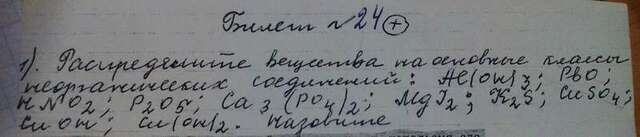 Билет №24 +
1). Распределите вещества на основные классы
неорганических соединений: Al(OH)3; PbO;
HNO2; P2O5; Ca3(PO4)2; MgI2; K2S; CuSO4;
CuOH; Cu(OH)2. Назовите